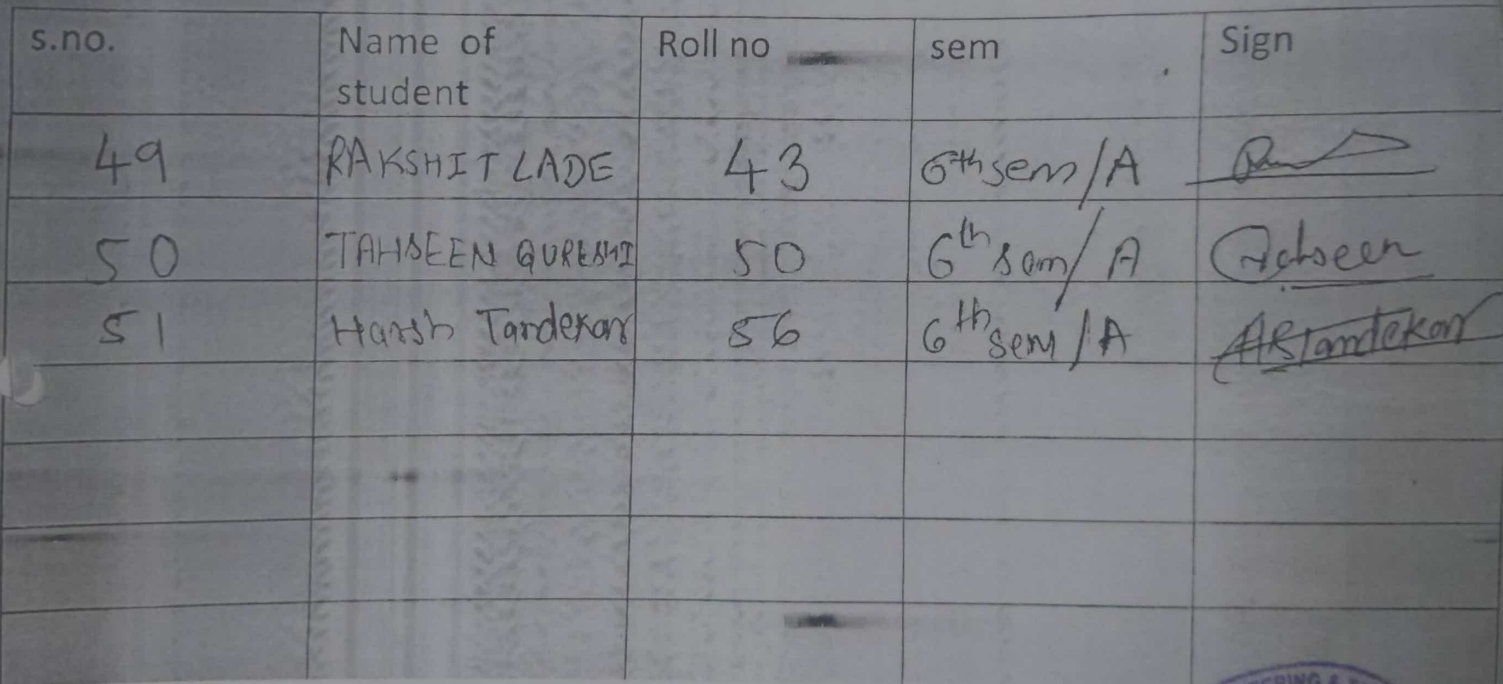 s.no. Name of student Roll no sem Sign
49 RAKSHIT LADE 43 6th sem/A
50 TAHSEEN QURESHI 50 6th sem/A Tahseen
51 Harsh Tandekar 56 6th sem/A ARTandekar
ERING &